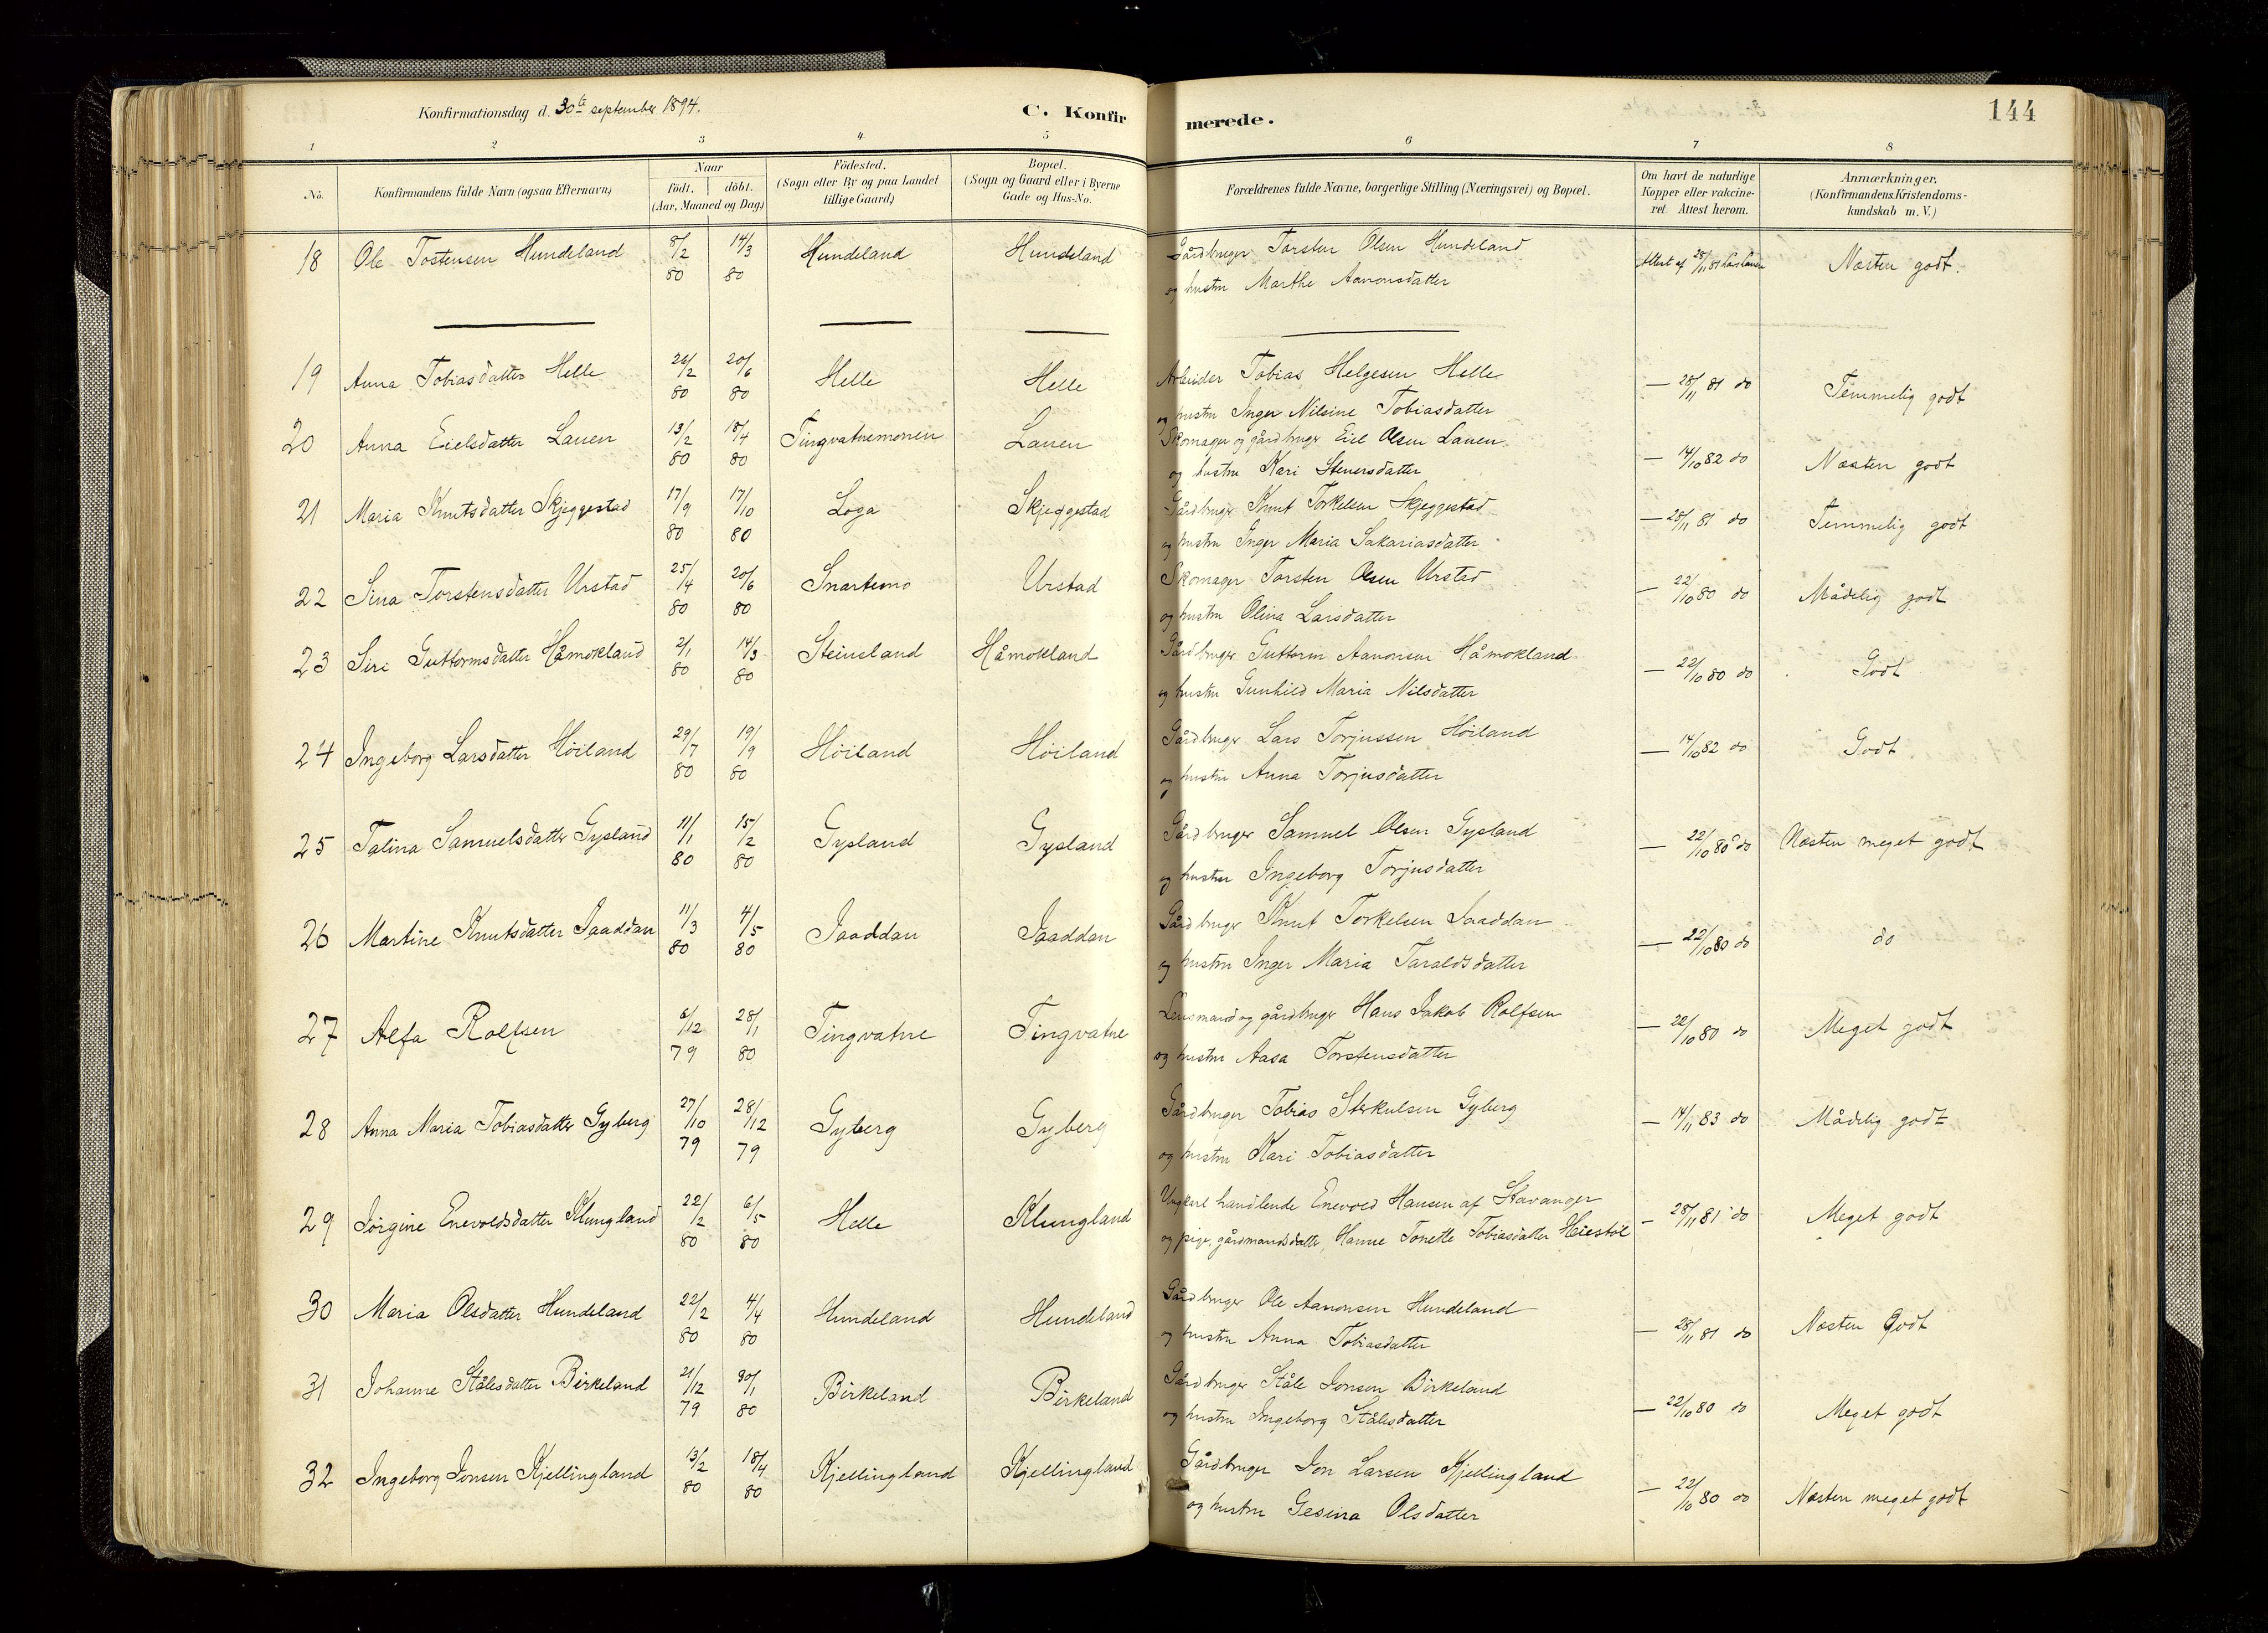 Konfirmationsdag d. 30te september 1894.
C. Konfirmerede.
144
1 2 3 4 5 6 7 8
No.
Konfirmandens fulde Navn (ogsaa Efternavn)
Naar
födt. döbt.
(Aar, Maaned og Dag)
Födested.
(Sogn eller By og paa Landet
tillige Gaard)
Bopæl.
(Sogn og Gaard eller i Byerne
Gade og Hus-No.
Forældrenes fulde Navne, borgerlige Stilling (Næringsvei) og Bopæl.
Om havt de naturlige
Kopper eller vakcine-
ret. Attest herom.
Anmærkninger.
(Konfirmandens Kristendoms-
kundskab m. V.)
18 Ole Tostensen Hundeland 8/2 80 14/3 80 Hundeland Hundeland Gårdbruger Torsten Olsen Hundeland Attest af 28/11 81 Næsten godt.
og hustru Marthe Aanonsdatter
19 Anna Tobiasdatter Helle 26/2 80 20/6 80 Helle Helle Arbeider Tobias Helgesen Helle — 28/11 81 do Temmelig godt
og hustru Inger Nilsine Tobiasdatter
20 Anna Eielsdatter Lauen 13/2 80 18/4 80 Tingvatnemonen Lauen Skomager og gårdbruger Eiel Olsen Lauen — 14/10 82 do Næsten godt
og hustru Kari Steuersdatter
21 Maria Knutsdatter Skjeggestad 17/9 80 17/10 80 Loga Skjeggestad Gårdbruger Knut Torkelsen Skjeggestad — 28/11 81 do Temmelig godt
og hustru Inger Maria Sakariasdatter
22 Sina Torstensdatter Urstad 25/4 80 20/6 80 Snartemo Urstad Skomager Torsten Olsen Urstad — 22/10 80 do Mådelig godt
og hustru Olina Larsdatter
23 Siri Guttormsdatter Håmokland 2/1 80 14/3 80 Steinsland Håmokland Gårdbruger Guttorm Aanonsen Håmokland — 22/10 80 do Godt
og hustru Gunhild Maria Nilsdatter
24 Ingeborg Larsdatter Höiland 29/7 80 19/9 80 Höiland Höiland Gårdbruger Lars Torjussen Höiland — 14/10 82 do Godt
og hustru Anna Torjusdatter
25 Talina Samuelsdatter Gysland 11/1 80 15/2 80 Gysland Gysland Gårdbruger Samuel Olsen Gysland — 22/10 80 do Næsten meget godt
og hustru Ingeborg Torjusdatter
26 Martine Knutsdatter Jaaddan 11/3 80 4/5 80 Jaaddan Jaaddan Gårdbruger Knut Torkelsen Jaaddan — 22/10 80 do do
og hustru Inger Maria Taraldsdatter
27 Alfa Rolfsen 6/12 79 28/1 80 Tingvatne Tingvatne Lensmand og gårdbruger Hans Jakob Rolfsen — 22/10 80 do Meget godt
og hustru Aasa Torstensdatter
28 Anna Maria Tobiasdatter Gyberg 27/10 79 28/12 79 Gyberg Gyberg Gårdbruger Tobias Gyberg — 14/11 83 do Mådelig godt
og hustru Kari Tobiasdatter
29 Jörgine Enevoldsdatter Klungland 22/2 80 6/5 80 Helle Klungland Ungkarl handlende Enevold Hansen af Stavanger — 28/11 81 do Meget godt
og pige, gårdmandsdatter, Hanne Tonette Tobiasdatter Heiestöl
30 Maria Olsdatter Hundeland 22/2 80 4/4 80 Hundeland Hundeland Gårdbruger Ole Aanonsen Hundeland — 28/11 81 do Næsten Godt
og hustru Anna Tobiasdatter
31 Johanne Stålesdatter Birkeland 21/12 79 30/1 80 Birkeland Birkeland Gårdbruger Ståle Jonsen Birkeland — 22/10 80 do Meget godt
og hustru Ingeborg Stålesdatter
32 Ingeborg Jonsen Kjellingland 13/2 80 18/4 80 Kjellingland Kjellingland Gårdbruger Jon Larsen Kjellingland — 22/10 80 do Næsten meget godt
og hustru Gesina Olsdatter